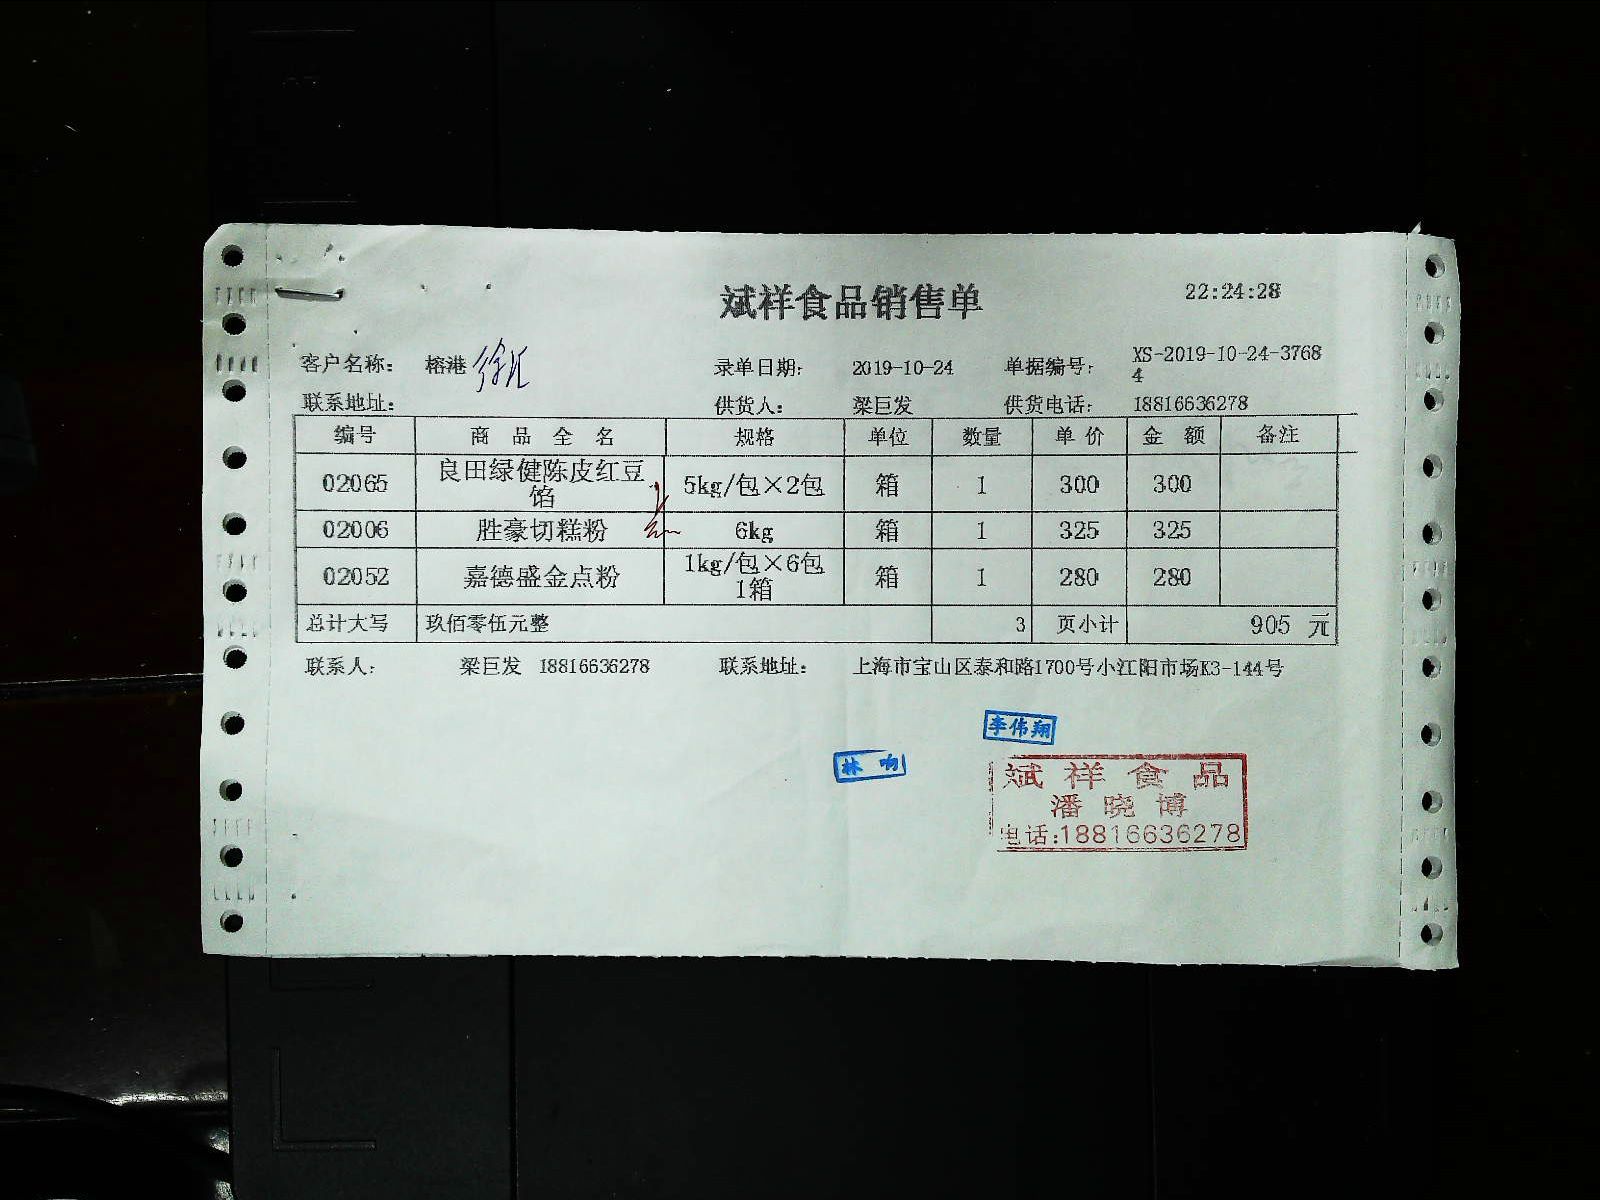 斌祥食品销售单 22:24:28
客户名称： 榕港 徐汇 录单日期： 2019-10-24 单据编号： XS-2019-10-24-3768
4
联系地址： 供货人： 梁巨发 供货电话： 18816636278
编号 商 品 全 名 规格 单位 数量 单 价 金 额 备注
02065 良田绿健陈皮红豆馅 5kg/包×2包 箱 1 300 300
02006 胜豪切糕粉 6kg 箱 1 325 325
02052 嘉德盛金点粉 1kg/包×6包1箱 箱 1 280 280
总计大写 玖佰零伍元整 3 页小计 905 元
联系人： 梁巨发 18816636278 联系地址： 上海市宝山区泰和路1700号小江阳市场K3-144号
李伟翔
林 响
斌祥食品
潘晓博
电话:18816636278